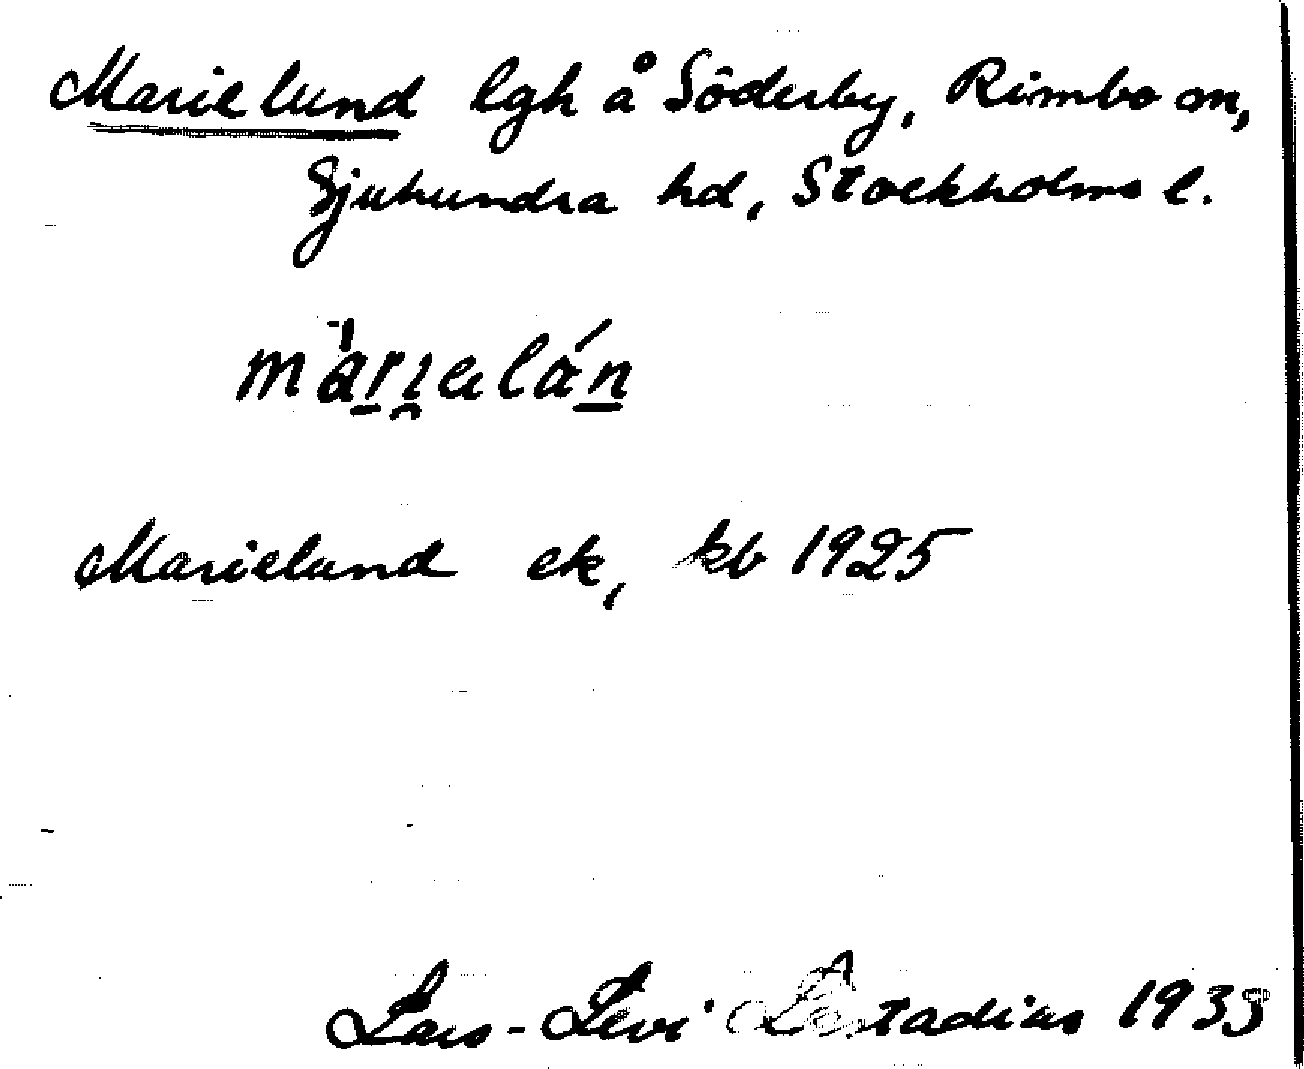 Marielund lgh å Söderby, Rimbo sn,
Sjuhundra hd, Stockholms l.
Marielund ek, kb 1925
Lars-Levi Læstadius 1933